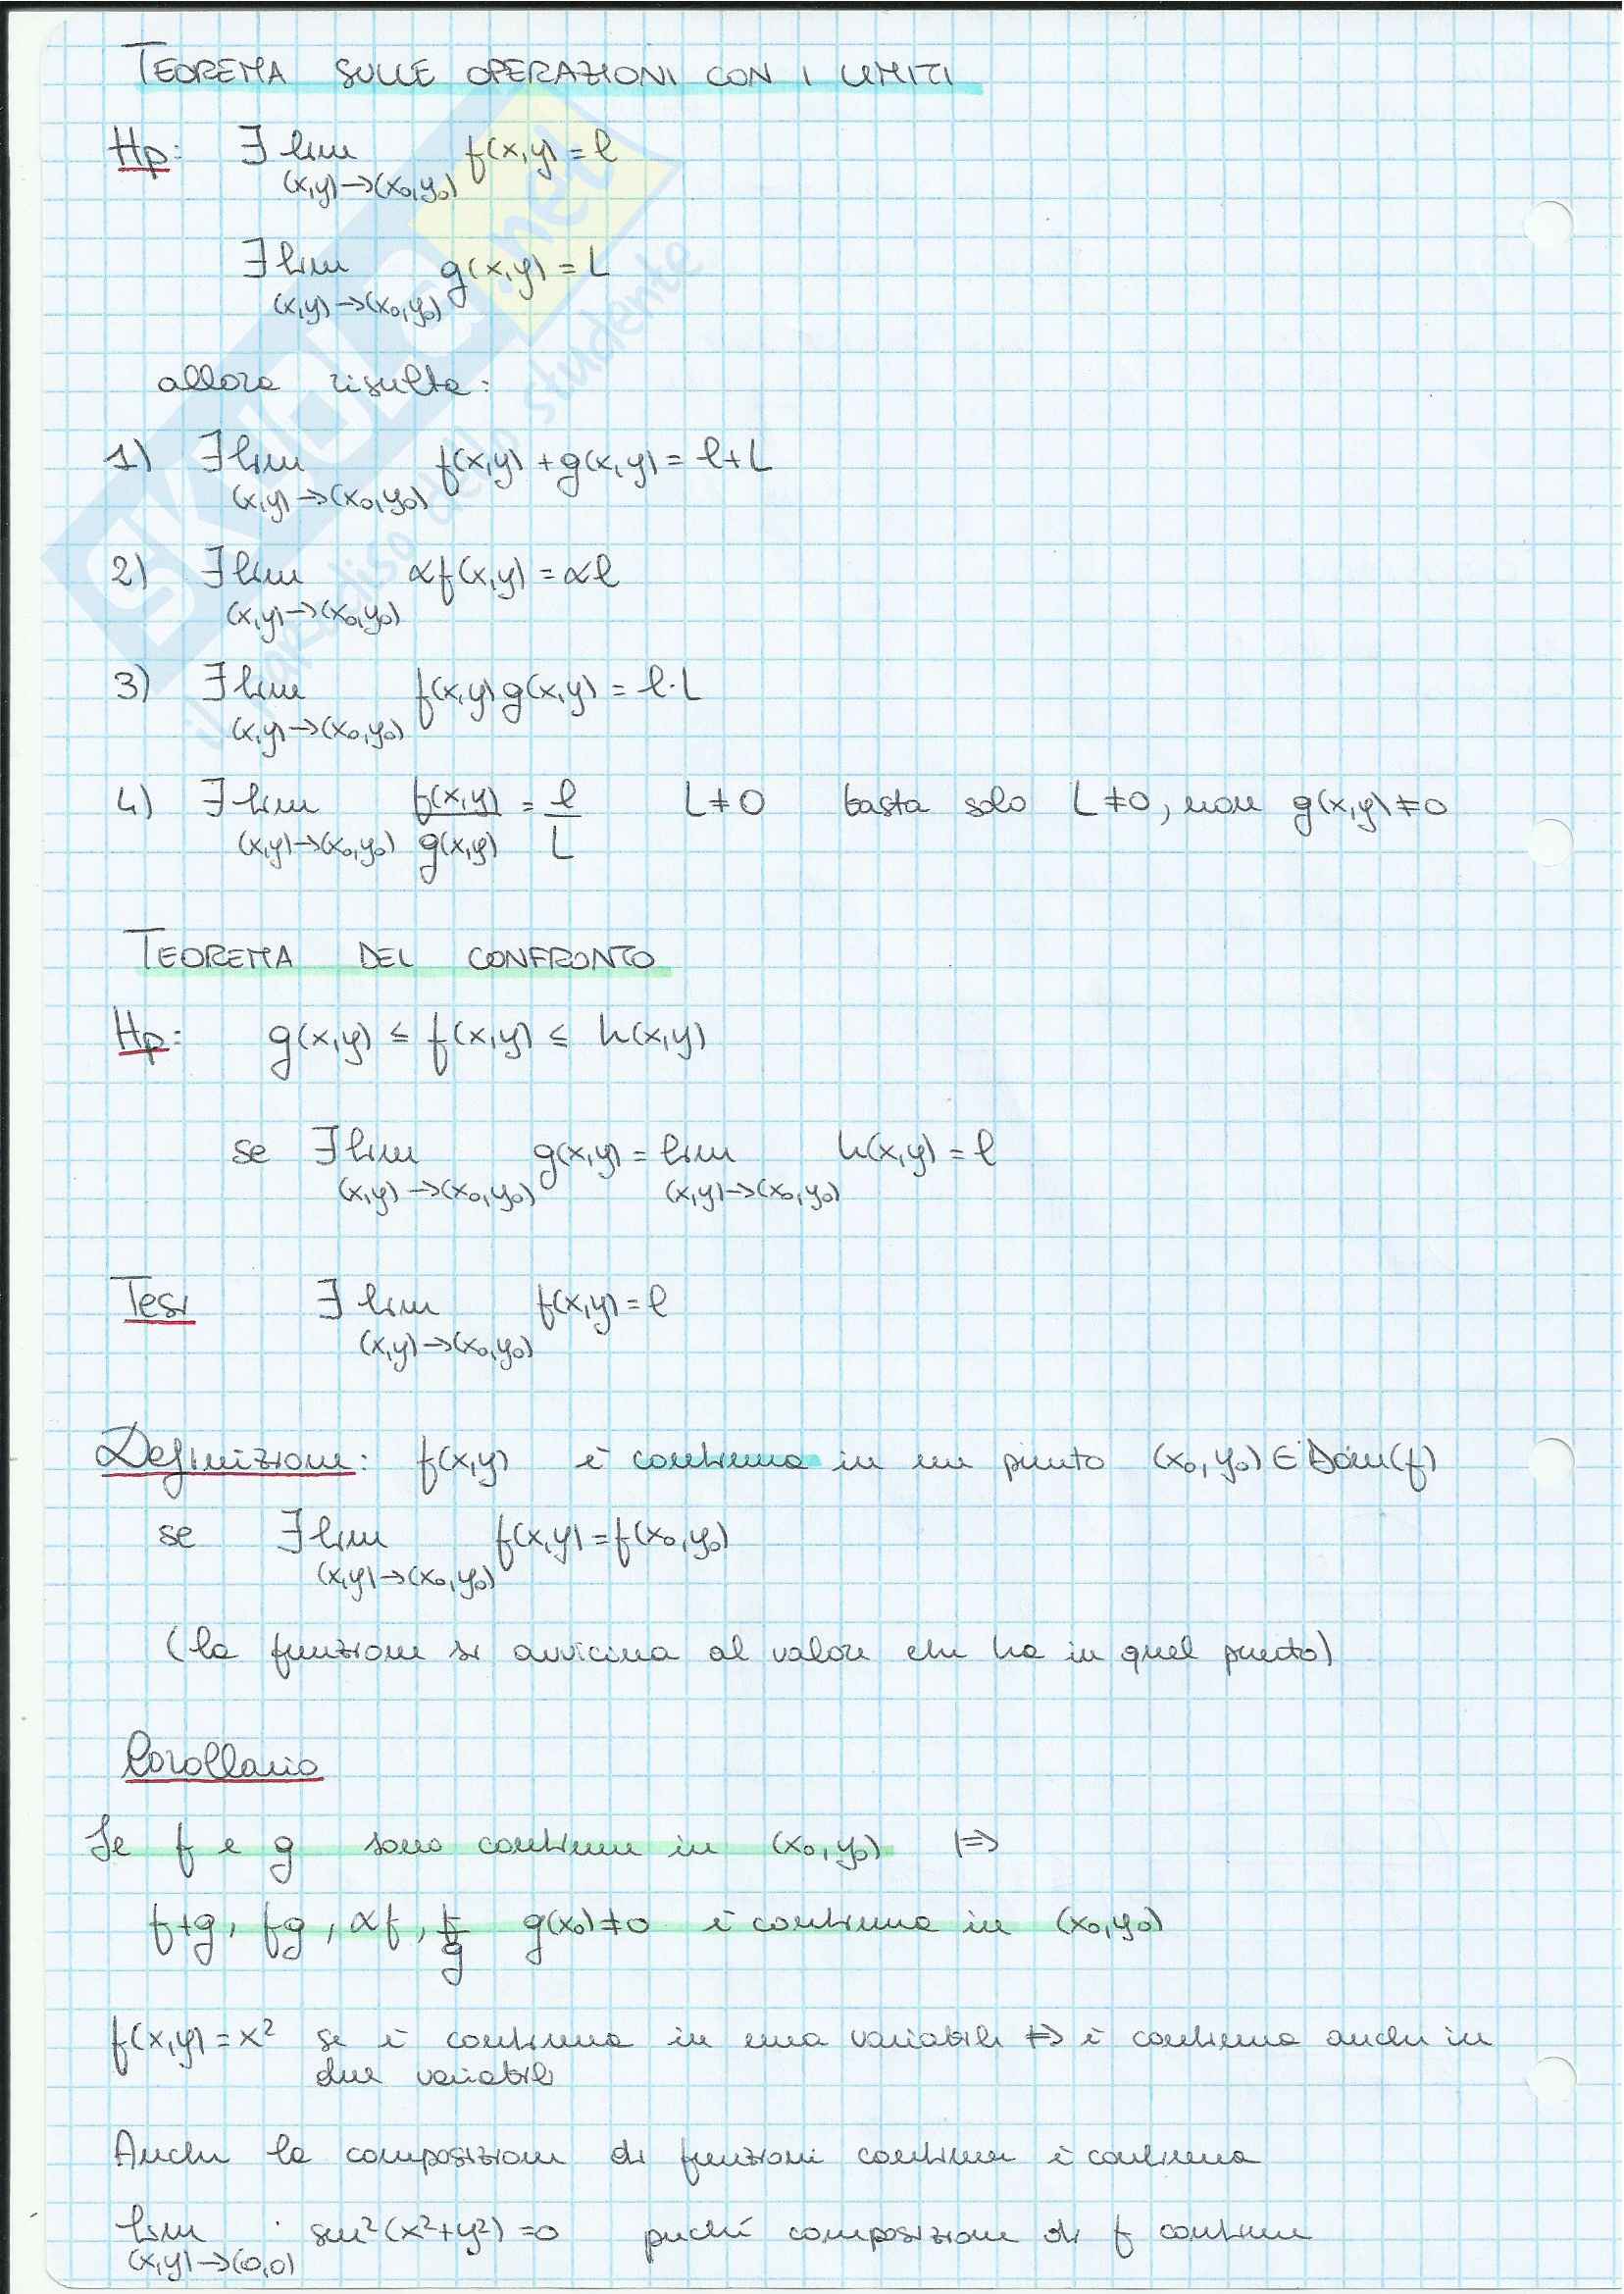 TEOREMA SULLE OPERAZIONI CON I LIMITI
Hp: ∃ lim f(x,y) = l
(x,y)→(x₀,y₀)
∃ lim g(x,y) = L
(x,y)→(x₀,y₀)
allora risulta:
1) ∃ lim f(x,y) + g(x,y) = l+L
(x,y)→(x₀,y₀)
2) ∃ lim αf(x,y) = αl
(x,y)→(x₀,y₀)
3) ∃ lim f(x,y) g(x,y) = l·L
(x,y)→(x₀,y₀)
4) ∃ lim f(x,y)/g(x,y) = l/L L≠0 basta solo L≠0, non g(x,y)≠0
(x,y)→(x₀,y₀)
TEOREMA DEL CONFRONTO
Hp: g(x,y) ≤ f(x,y) ≤ h(x,y)
se ∃ lim g(x,y) = lim h(x,y) = l
(x,y)→(x₀,y₀) (x,y)→(x₀,y₀)
Tesi ∃ lim f(x,y) = l
(x,y)→(x₀,y₀)
Definizione: f(x,y) è continua in un punto (x₀,y₀) ∈ Dom(f)
se ∃ lim f(x,y) = f(x₀,y₀)
(x,y)→(x₀,y₀)
(la funzione si avvicina al valore che ha in quel punto)
Corollario
Se f e g sono continue in (x₀,y₀) |⇒
f+g, fg, αf, f/g g(x₀)≠0 è continua in (x₀,y₀)
f(x,y) = x² se è continua in una variabile |⇒ è continua anche in
due variabili
Anche la composizione di funzioni continue è continua
lim sen²(x²+y²) = 0 perché composizione di f continue
(x,y)→(0,0)
SKUOLA.net
il paradiso dello studente